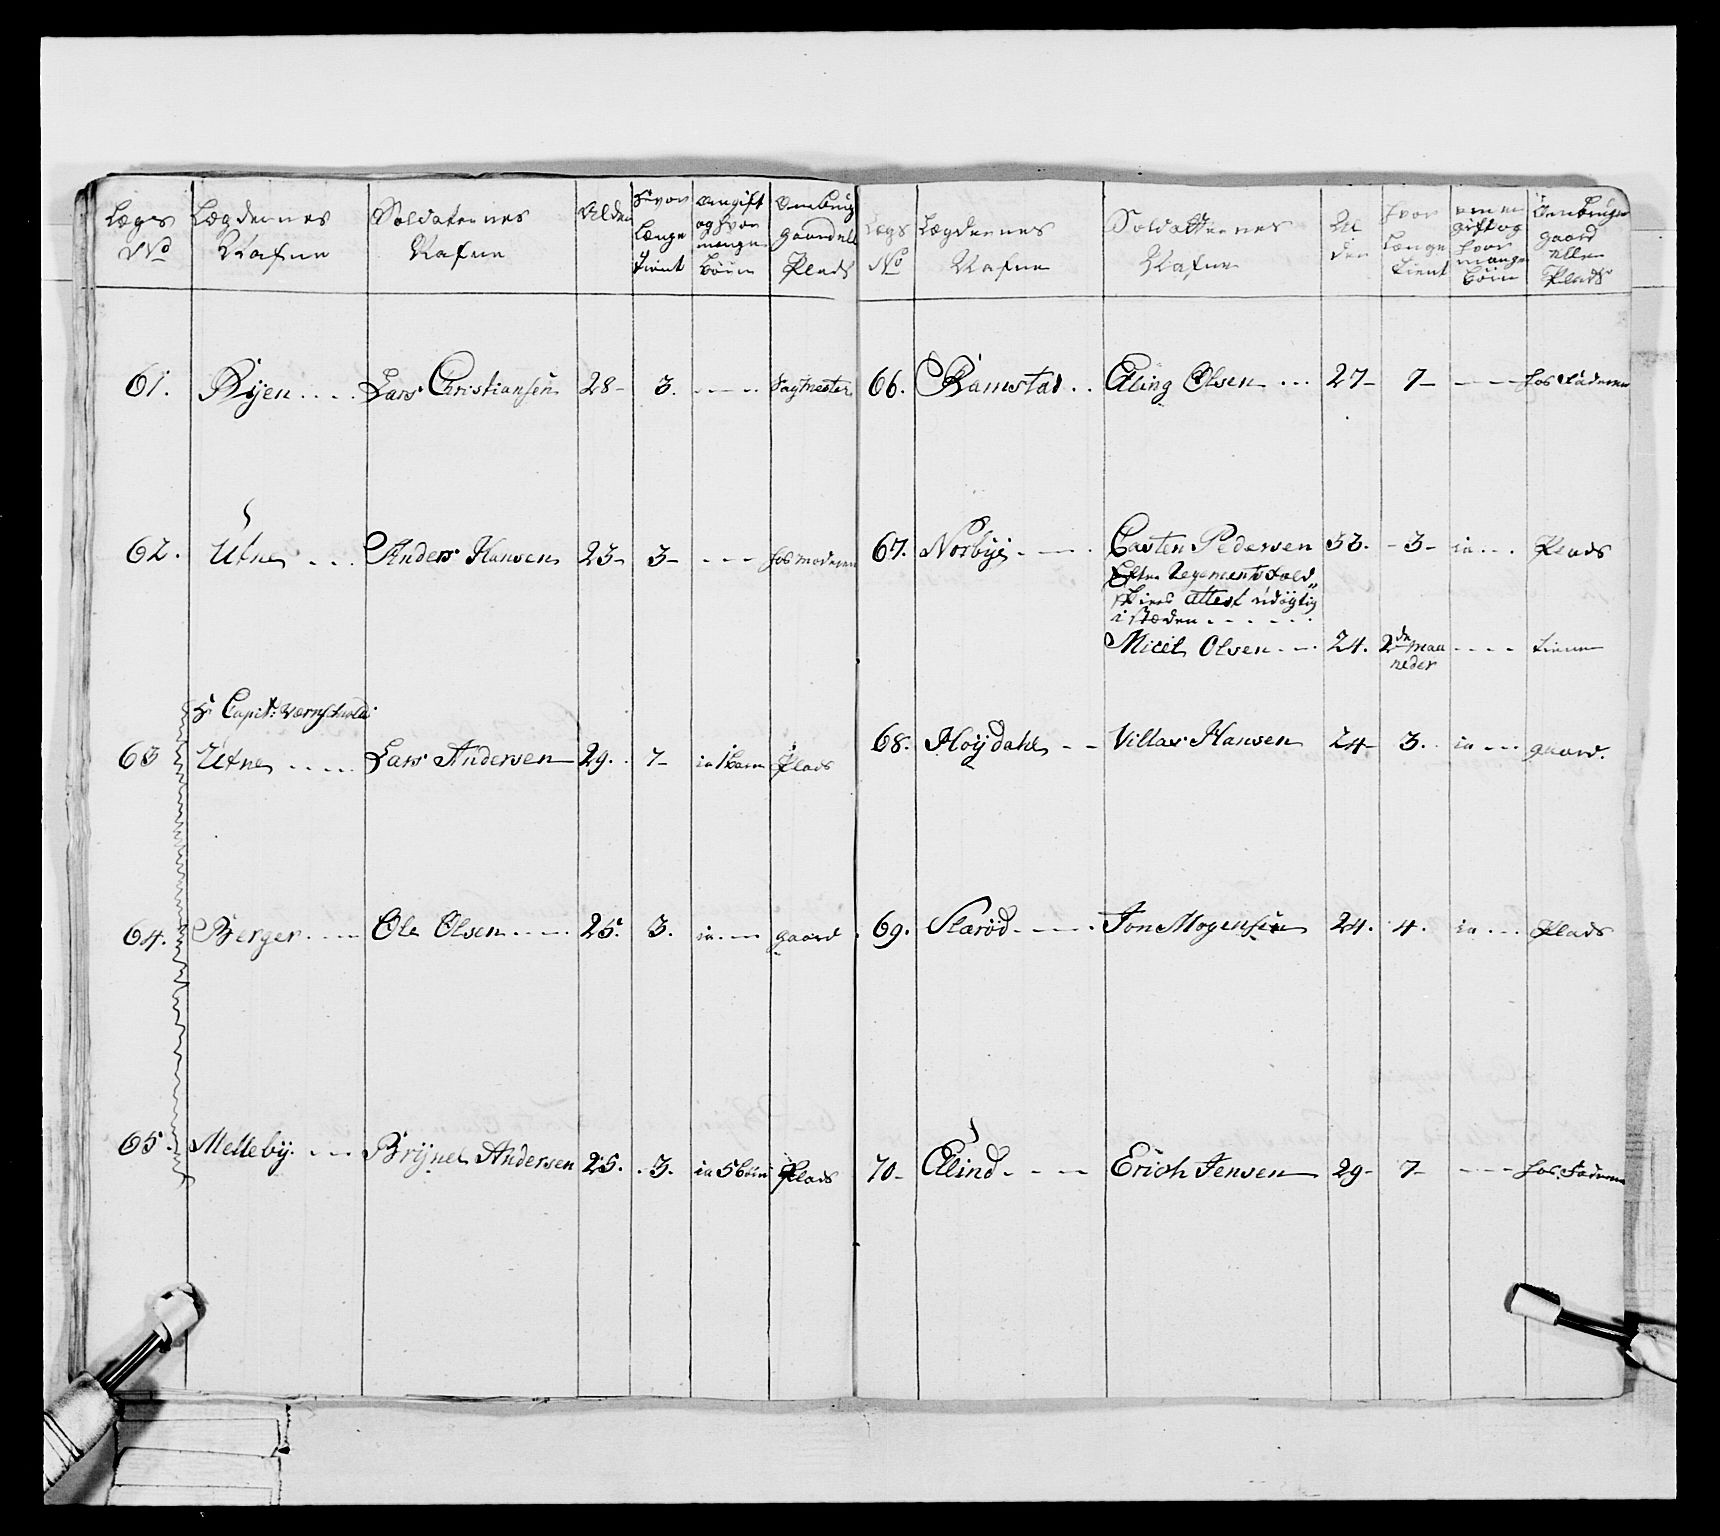 Lægs No | Lægdernes Nafne | Soldaternes Nafne | Alder | Hvor længe tient | om gift og hvor mange börn | om bruger gaard eller Plads
61. Byen .... Lars Christiansen 28 - 3. ---- Sagmester
62. Utne ... Anders Hansen 23 - 3 - --- hos moderen
Hr Capit:
63 Utne ..... Lars Andersen 29. 7 - ia 1 barn Plads
64. Berger .... Ole Olsen .... 25. 3. ia --- gaard
65. Melleby --- Brynel Andersen 25. 3. ia 5 börn Plads
Lægs No | Lægdernes Nafne | Soldatternes Nafne | Alder | hvor længe tient | om er gift og hvor mange börn | om bruger gaard eller Plads
66. Ramstad .. Elling Olsen ... 27 - 7 - --- hos Faderen
67. Norbye ---- Casten Pedersen 33. - 3 - ia ... Plads
Efter Regements Feld-
skiers Attest udögtig
i stæden ......
Micel Olsen --- 24. 2de maa
neder ---- tiener
68. Höydahl -- Villas Hansen 24 - 3. ia --- gaard.
69. Slaröd ---- Jon Mogensen 24. 4. ia --- Plads
70 - Elind ---- Erich Jensen 29 - 7 - ---- hos Faderen